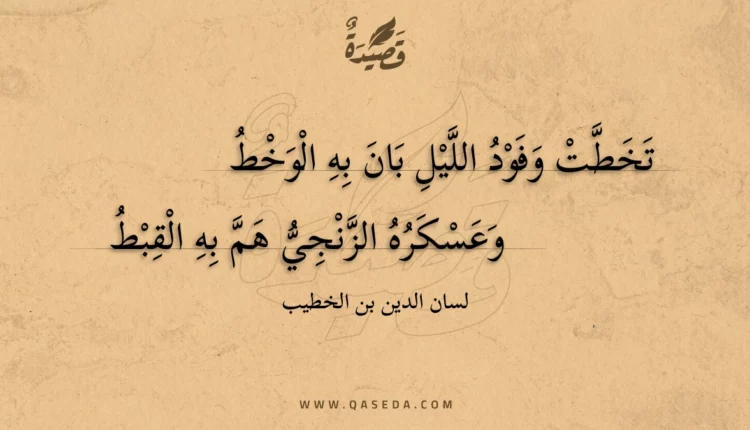 قَصِيْدَةٌ
تَخَطَّتْ وَفَوْدُ اللَّيْلِ بَانَ بِهِ الْوَخْطُ
وَعَسْكَرُهُ الزَّنْجِيُّ هَمَّ بِهِ الْقِبْطُ
لسان الدين بن الخطيب
WWW.QASEDA.COM